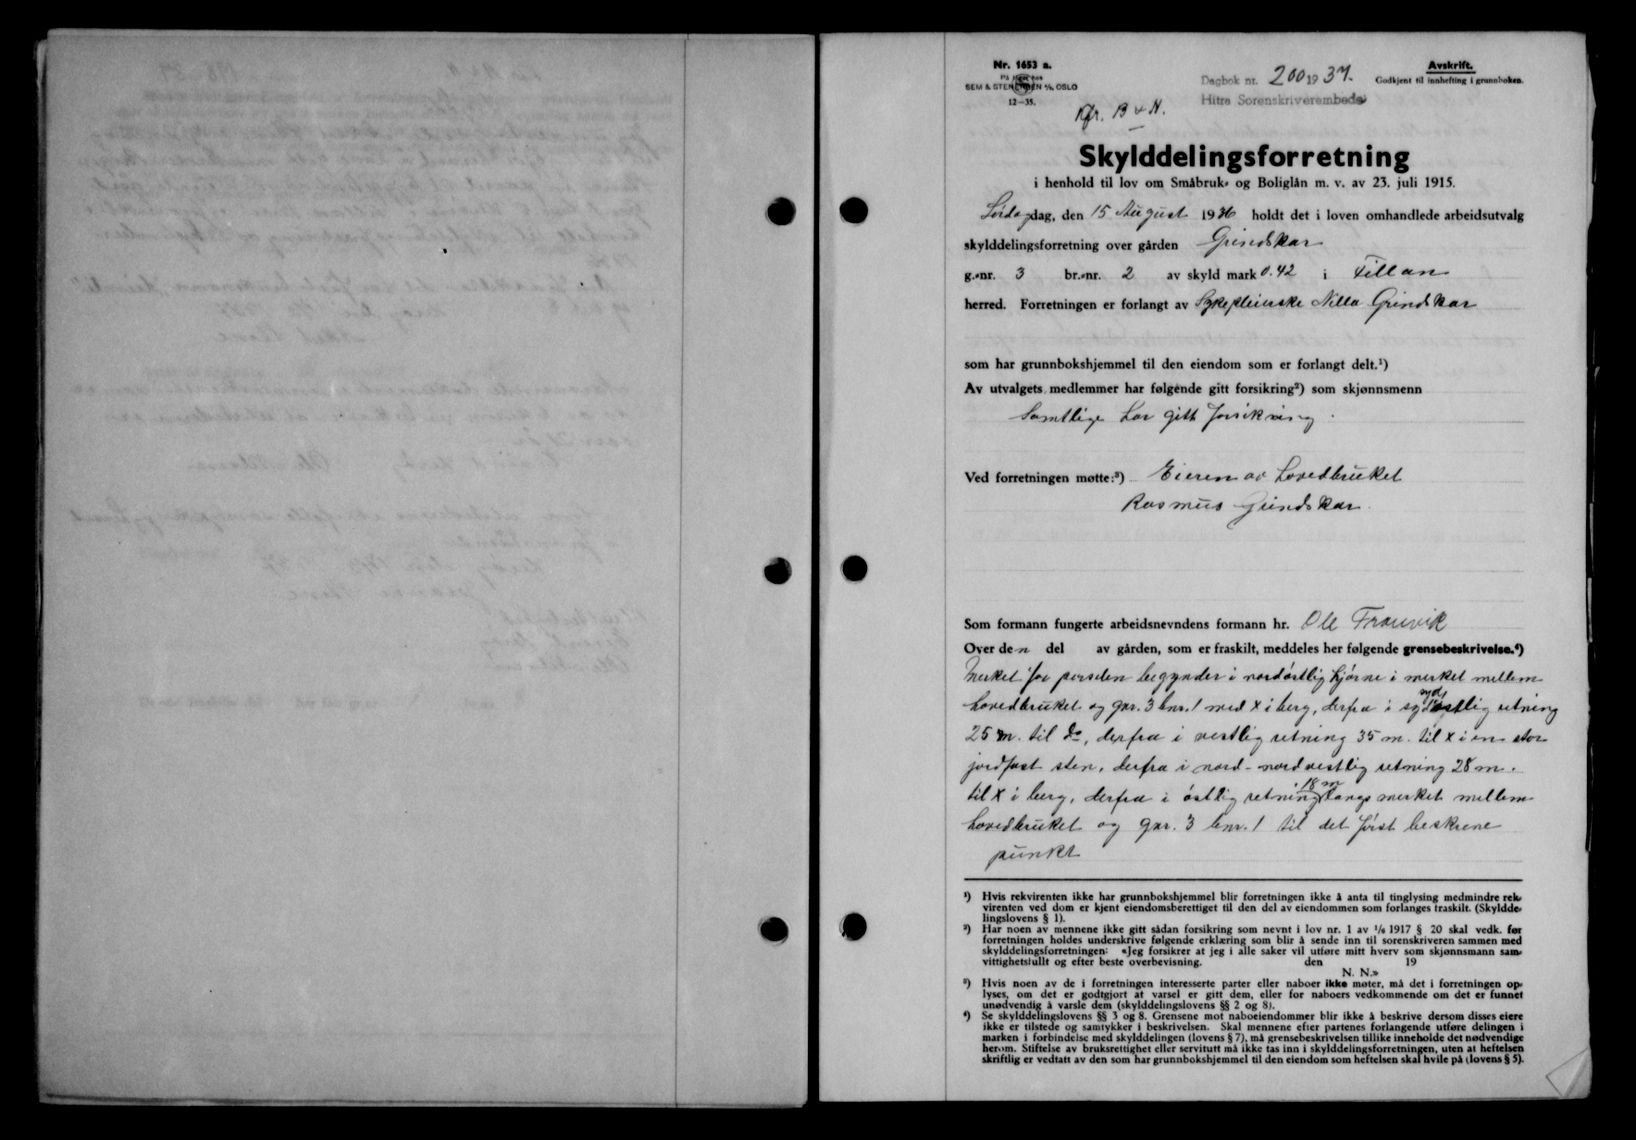 Nr. 1653 a.
På lager hos
SEM & STENERSEN A/S, OSLO
12—35.
Dagbok nr. 200 1937.
Hitra Sorenskriverembede
Avskrift.
Godkjent til innhefting i grunnboken.
Kfr. B & N.
Skylddelingsforretning
i henhold til lov om Småbruk- og Boliglån m. v. av 23. juli 1915.
dag, den 15 August 1936 holdt det i loven omhandlede arbeidsutvalg
skylddelingsforretning over gården Grindskar
g.-nr. 3 br.-nr. 2 av skyld mark 0.42 i Fillan
herred. Forretningen er forlangt av Sykepleierske Nilla Grindskar
som har grunnbokshjemmel til den eiendom som er forlangt delt.¹)
Av utvalgets medlemmer har følgende gitt forsikring²) som skjønnsmenn
Samtlige har gitt forsikring.
Ved forretningen møtte:³) Eieren av hovedbruket
Rasmus Grindskar.
Som formann fungerte arbeidsnevndens formann hr. Ole
Over den del av gården, som er fraskilt, meddeles her følgende grensebeskrivelse.⁴)
Merket for parselen begynder i nordøstlig hjørne i merket mellem
hovedbruket og gnr. 3 bnr. 1 med x i berg, derfra i sydøstlig retning
25 m. til do, derfra i vestlig retning 35 m. til x i en stor
jordfast sten, derfra i nord-nordvestlig retning 28 m.
til x i berg, derfra i østlig retning 18 m langs merket mellem
hovedbruket og gnr. 3 bnr. 1 til det først beskrevne
punkt
¹) Hvis rekvirenten ikke har grunnbokshjemmel blir forretningen ikke å anta til tinglysing medmindre rek-
virenten ved dom er kjent eiendomsberettiget til den del av eiendommen som forlanges fraskilt. (Skyldde-
lingslovens § 1).
²) Har noen av mennene ikke gitt sådan forsikring som nevnt i lov nr. 1 av 1/6 1917 § 20 skal vedk. før
forretningen holdes underskrive følgende erklæring som blir å sende inn til sorenskriveren sammen med
skylddelingsforretningen: «Jeg forsikrer at jeg i alle saker vil utføre mitt hverv som skjønnsmann sam-
vittighetsfullt og efter beste overbevisning. den 19
N. N.»
³) Hvis noen av de i forretningen interesserte parter eller naboer ikke møter, må det i forretningen op-
lyses, om det er godtgjort at varsel er gitt dem, eller for naboers vedkommende om det er funnet
unødvendig å varsle dem (skylddelingslovens §§ 2 og 8).
⁴) Se skylddelingslovens §§ 3 og 8. Grensene mot naboeiendommer blir ikke å beskrive dersom disses eiere
ikke er tilstede og samtykker i beskrivelsen. Skal mennene efter partenes forlangende utføre delingen i
marken i forbindelse med skylddelingen (lovens § 7), må grensebeskrivelsen tillike inneholde det nødvendige
herom. Stiftelse av bruksrettighet eller servitutt må ikke tas inn i skylddelingsforretningen, uten at heftelsen
skriftlig er vedtatt av den som har grunnbokshjemmel til den eiendom som heftelsen skal hvile på (lovens § 5).